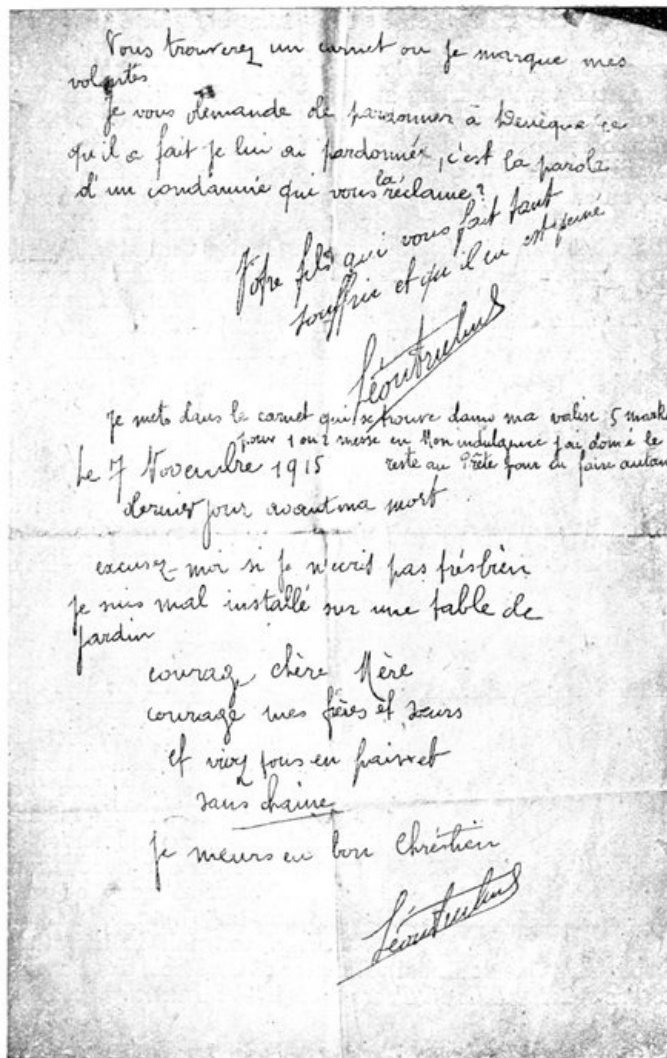 Vous trouverez un carnet ou je marque mes
volontés
Je vous demande de pardonner à ce
qu'il a fait je lui ai pardonner, c'est la parole
d'un condamnée qui vous la réclame?
Votre fils qui vous fait tant
souffrir et qu'il en est peiné
Léon Trulin
je mets dans le carnet qui se trouve dans ma valise 5 mark
pour 1 ou 2 messe en Mon indulgence j'ai donné le
Le 7 Novembre 1915
reste au Prête pour en faire autant
dernier jour avant ma mort
excusez-moi si je n'ecris pas trés bien
je suis mal installé sur une table de
jardin
courage chère Mère
courage mes frères et sœurs
et vivez tous en paix et
sans haine
je meurs en bon Chrétien
Léon Trulin